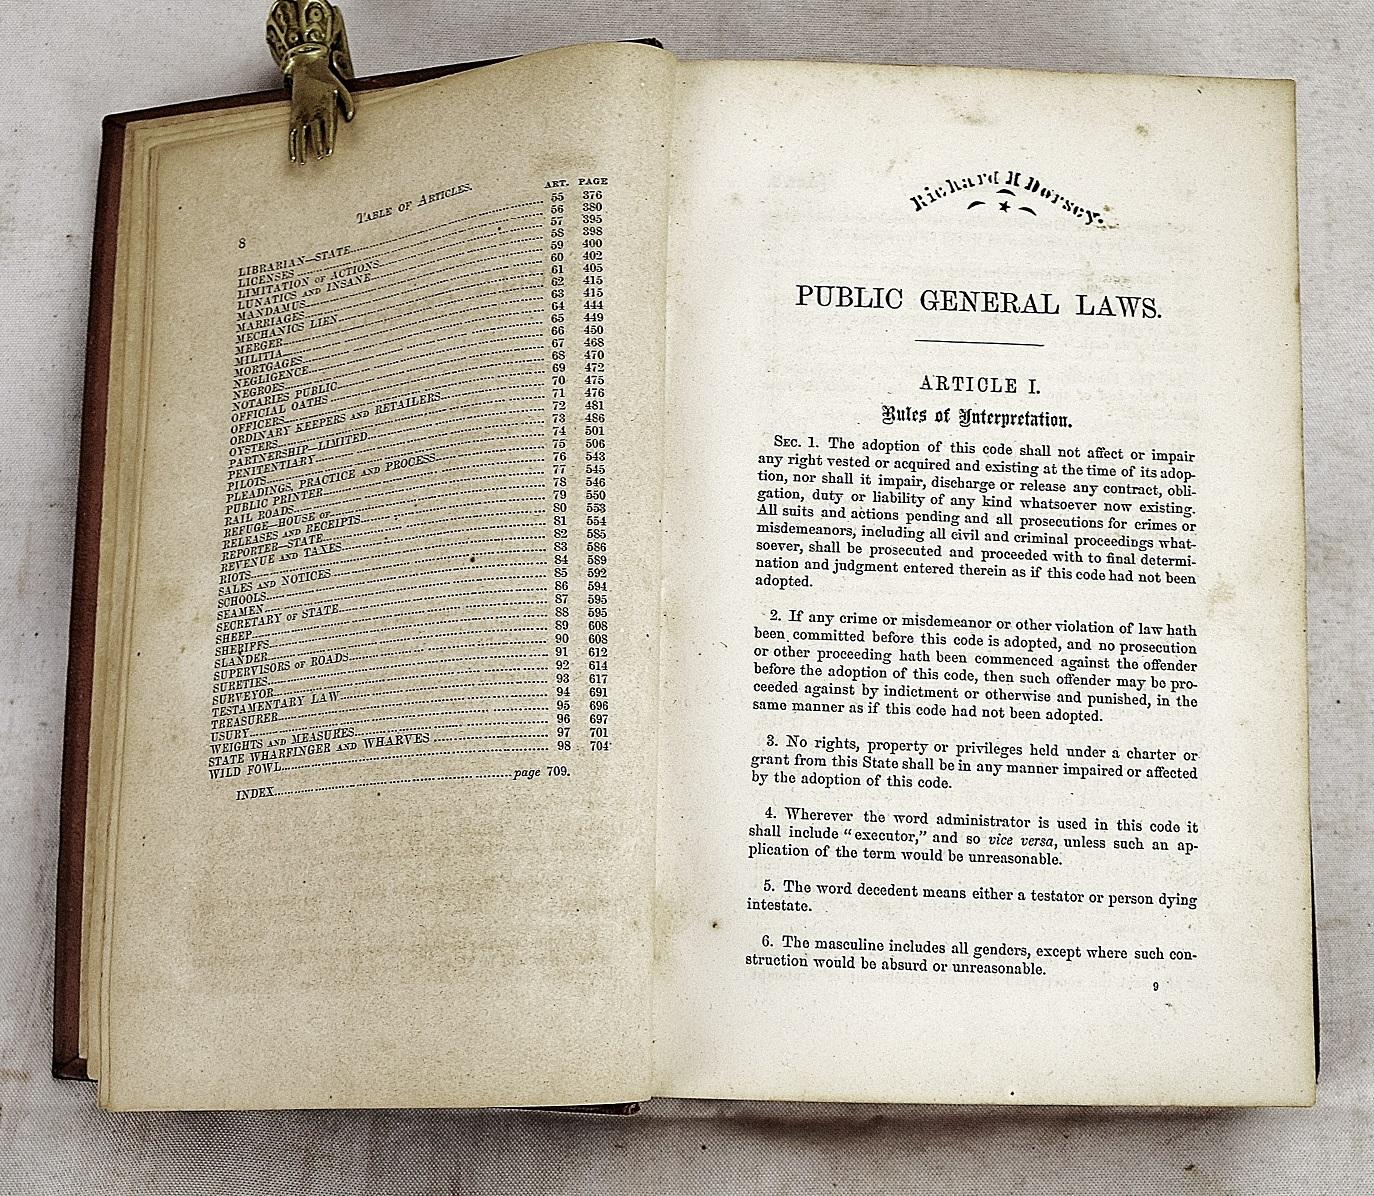 8
TABLE OF ARTICLES.
ART. PAGE
LIBRARIAN—STATE 55 376
LICENSES 56 380
LIMITATION OF ACTIONS 57 395
LUNATICS AND INSANE 58 398
MANDAMUS 59 400
MARRIAGES 60 402
MECHANICS LIEN 61 405
MERGER 62 415
MILITIA 63 415
MORTGAGES 64 444
NEGLIGENCE 65 449
NEGROES 66 450
NOTARIES PUBLIC 67 468
OFFICIAL OATHS 68 470
OFFICERS 69 472
ORDINARY KEEPERS AND RETAILERS 70 475
OYSTERS 71 476
PARTNERSHIP—LIMITED 72 481
PENITENTIARY 73 486
PILOTS 74 501
PLEADINGS, PRACTICE AND PROCESS 75 506
PUBLIC PRINTER 76 543
RAIL ROADS 77 545
REFUGE—HOUSE OF 78 546
RELEASES AND RECEIPTS 79 550
REPORTER—STATE 80 553
REVENUE AND TAXES 81 554
RIOTS 82 585
SALES AND NOTICES 83 586
SCHOOLS 84 589
SEAMEN 85 592
SECRETARY OF STATE 86 594
SHEEP 87 595
SHERIFFS 88 595
SLANDER 89 608
SUPERVISORS OF ROADS 90 608
SURETIES 91 612
SURVEYOR 92 614
TESTAMENTARY LAW 93 617
TREASURER 94 691
USURY 95 696
WEIGHTS AND MEASURES 96 697
STATE WHARFINGER AND WHARVES 97 701
WILD FOWL 98 704
INDEX page 709.
Richard H Dorsey.
PUBLIC GENERAL LAWS.
ARTICLE I.
Rules of Interpretation.
SEC. 1. The adoption of this code shall not affect or impair
any right vested or acquired and existing at the time of its adop-
tion, nor shall it impair, discharge or release any contract, obli-
gation, duty or liability of any kind whatsoever now existing.
All suits and actions pending and all prosecutions for crimes or
misdemeanors, including all civil and criminal proceedings what-
soever, shall be prosecuted and proceeded with to final determi-
nation and judgment entered therein as if this code had not been
adopted.
2. If any crime or misdemeanor or other violation of law hath
been committed before this code is adopted, and no prosecution
or other proceeding hath been commenced against the offender
before the adoption of this code, then such offender may be pro-
ceeded against by indictment or otherwise and punished, in the
same manner as if this code had not been adopted.
3. No rights, property or privileges held under a charter or
grant from this State shall be in any manner impaired or affected
by the adoption of this code.
4. Wherever the word administrator is used in this code it
shall include “executor,” and so vice versa, unless such an ap-
plication of the term would be unreasonable.
5. The word decedent means either a testator or person dying
intestate.
6. The masculine includes all genders, except where such con-
struction would be absurd or unreasonable.
9